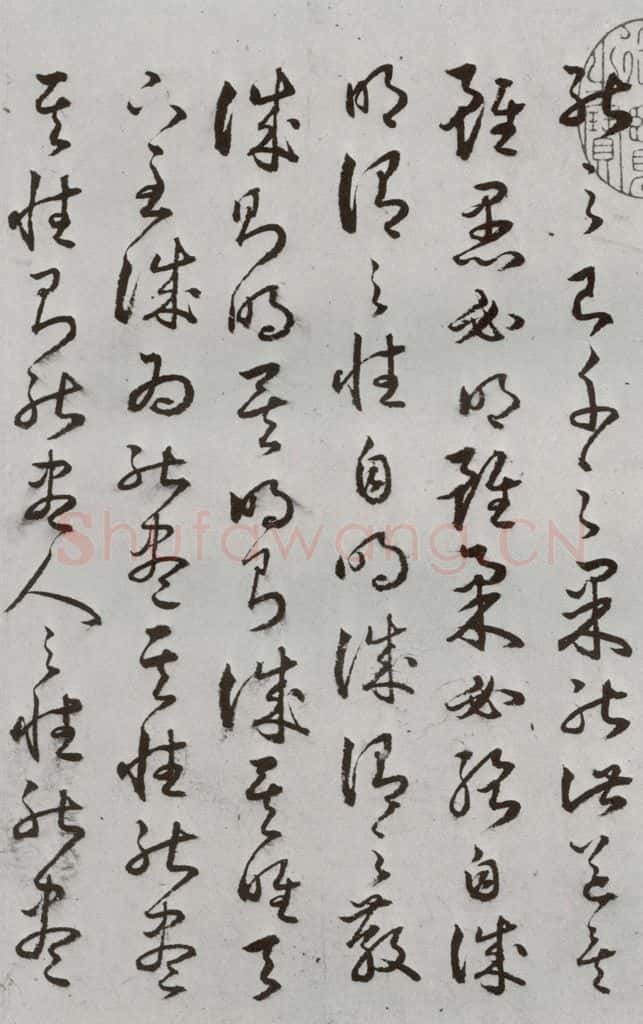 能之己千之果能此道矣
雖愚必明雖柔必強自誠
明謂之性自明誠謂之教
誠則明矣明則誠矣唯天
下至誠為能盡其性能盡
其性則能盡人之性能盡
Shufawang.CN